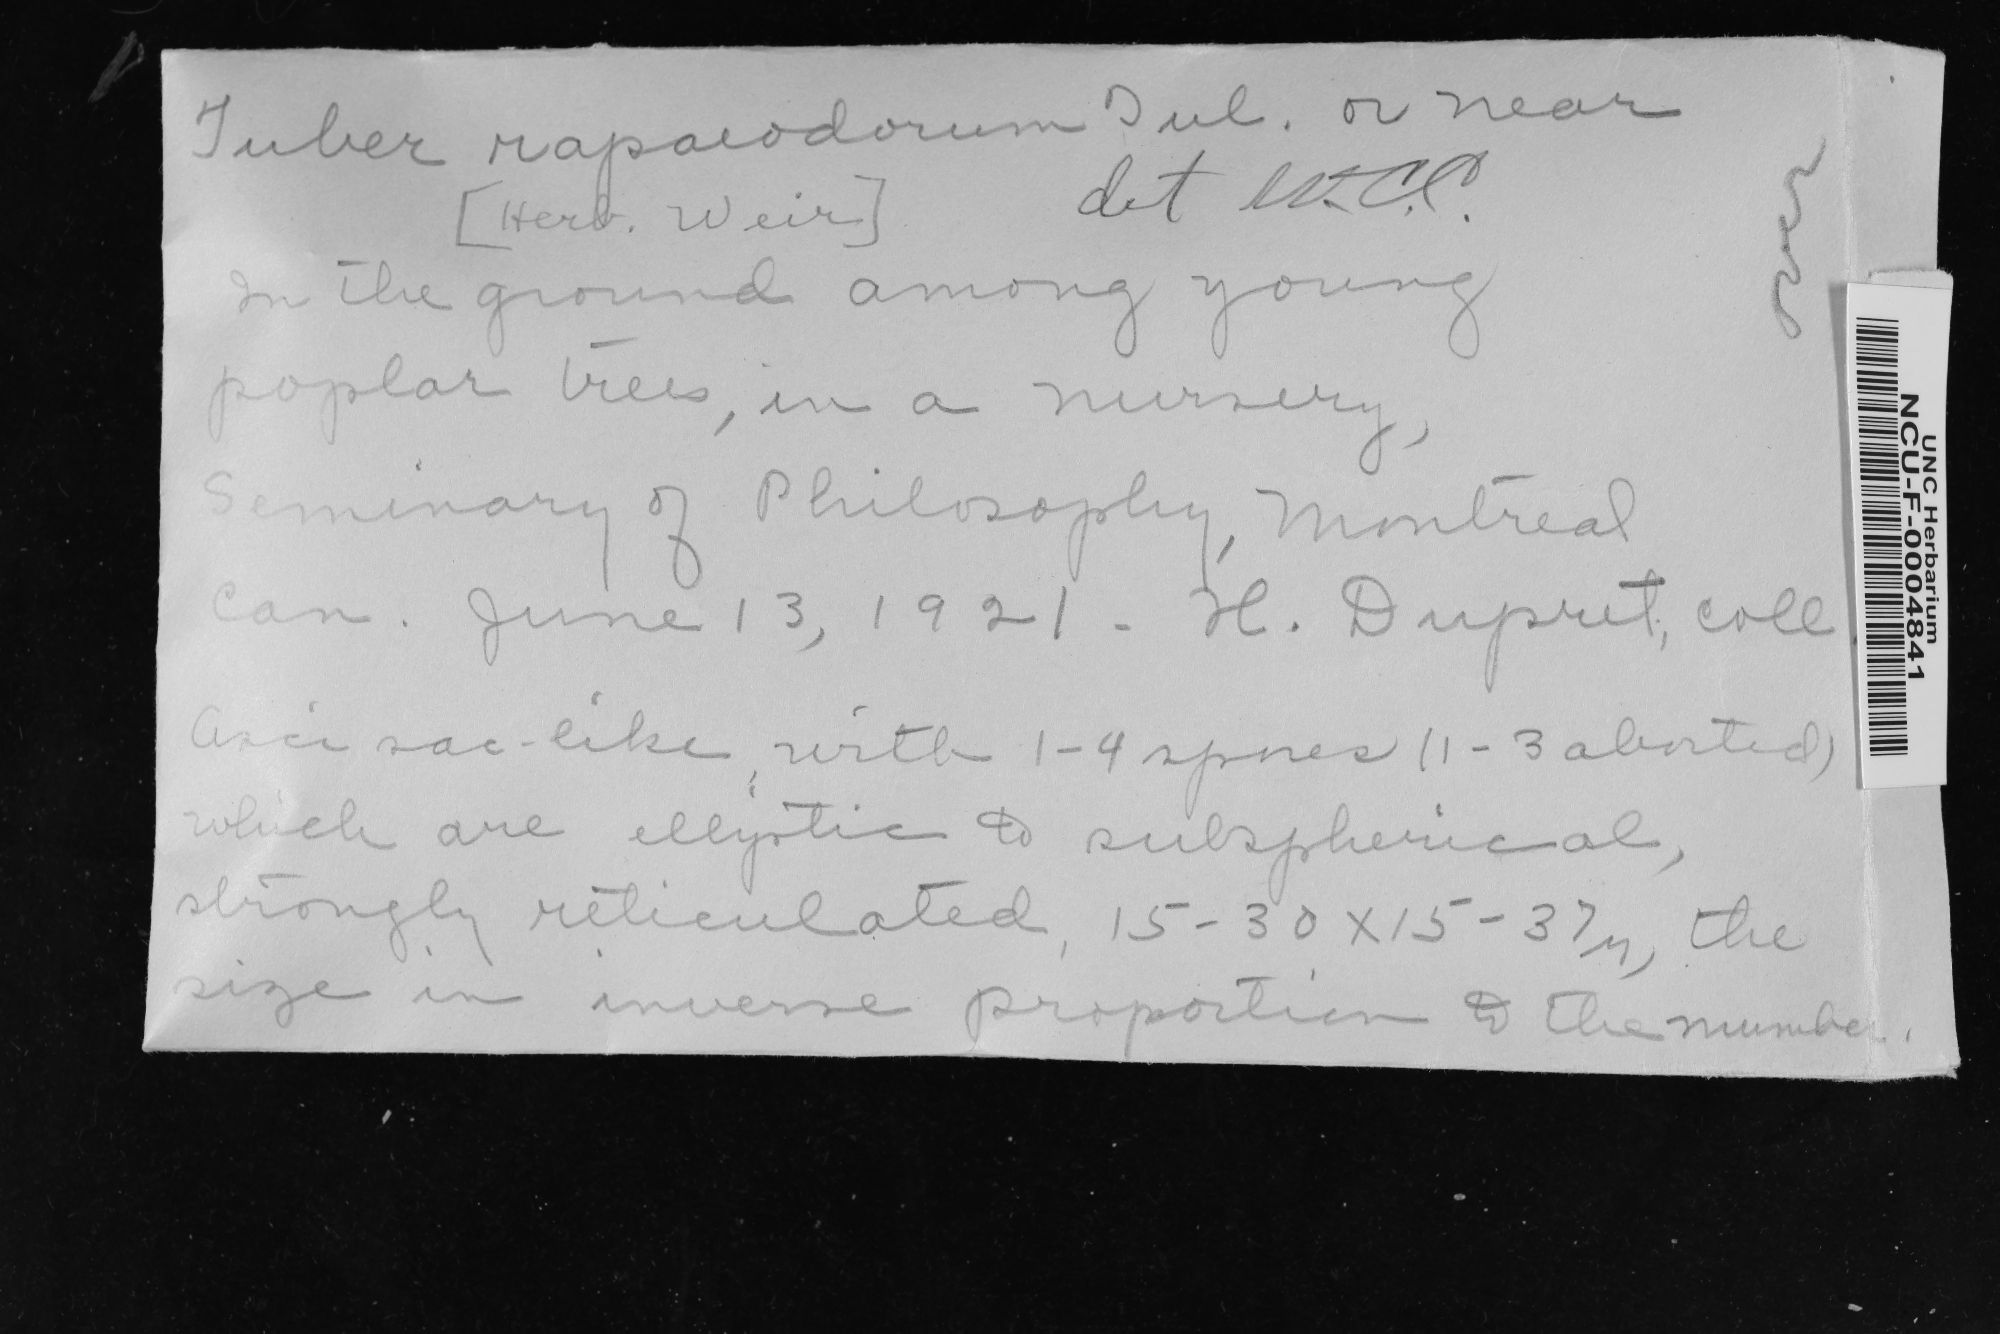 Tuber rapaeodorum Tul. or near
[Herb. Weir] det W.C.C.
In the ground among young
poplar trees, in a nursery,
Seminary of Philosophy, Montreal
Can. June 13, 1921 - H. Dupret, coll.
Asci sac-like, with 1-4 spores (1-3 aborted)
which are elliptic to subspherical,
strongly reticulated, 15-30 X 15-37µ, the
size in inverse proportion to the number.
UNC Herbarium
NCU-F-0004841